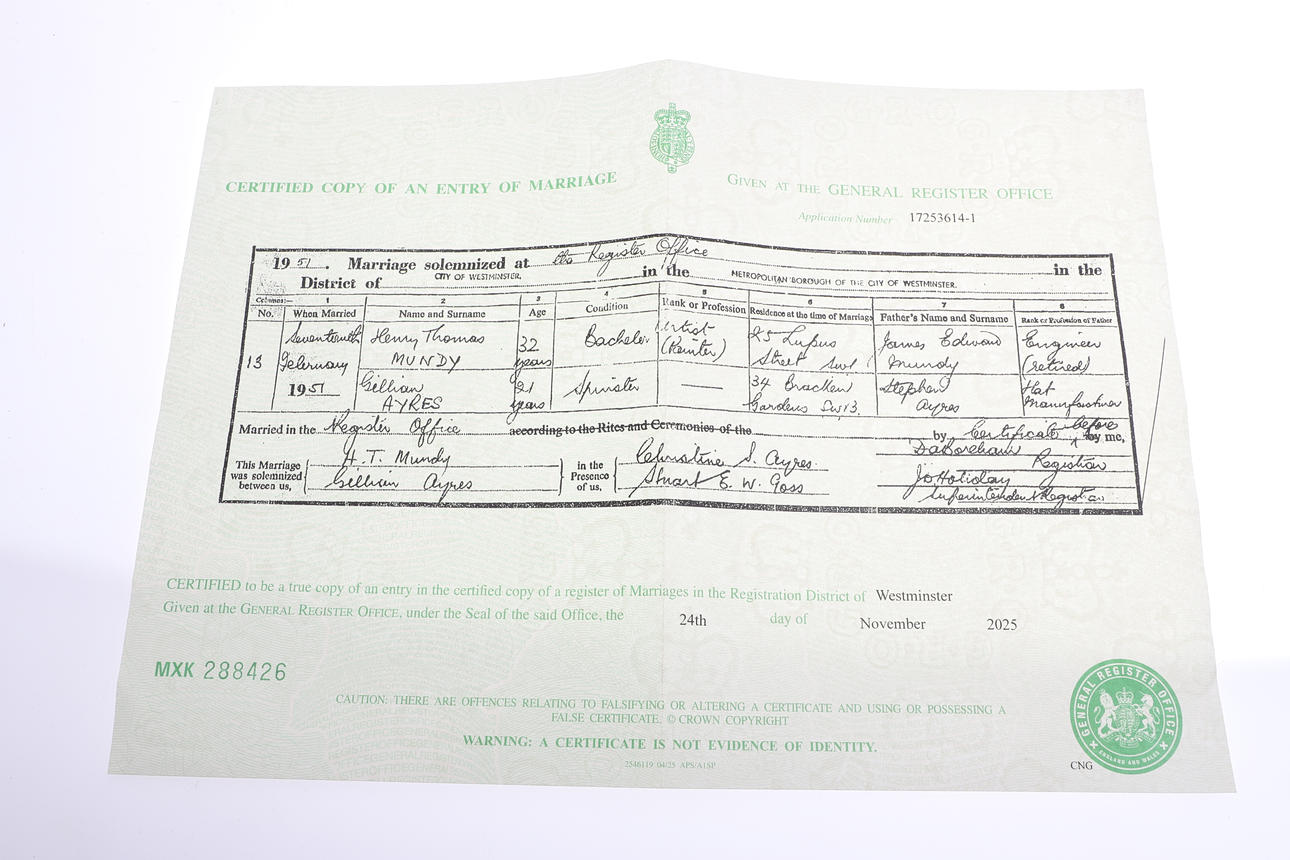 CERTIFIED COPY OF AN ENTRY OF MARRIAGE
GIVEN AT THE GENERAL REGISTER OFFICE
Application Number 17253614-1
1951. Marriage solemnized at the Register Office in the
District of CITY OF WESTMINSTER. in the METROPOLITAN BOROUGH OF THE CITY OF WESTMINSTER.
Columns:— 1 2 3 4 5 6 7 8
No. When Married Name and Surname Age Condition Rank or Profession Residence at the time of Marriage Father's Name and Surname Rank or Profession of Father
Seventeenth Henry Thomas 32 Bachelor Artist 25 Lupus James Edward Engineer
13 February MUNDY years (Painter) Street SW1 Mundy (retired)
1951 Gillian 21 Spinster —— 34 Bracken Stephen Hat
AYRES years Gardens SW13. Ayres Manufacturer
Married in the Register Office according to the Rites and Ceremonies of the by Certificate before by me,
This Marriage was solemnized between us, H.T. Mundy in the Presence of us, Christine S. Ayres. Registrar
Gillian Ayres Stuart E. W. Goss J Holiday
Superintendent Registrar
CERTIFIED to be a true copy of an entry in the certified copy of a register of Marriages in the Registration District of Westminster
Given at the GENERAL REGISTER OFFICE, under the Seal of the said Office, the 24th day of November 2025
MXK 288426
CAUTION: THERE ARE OFFENCES RELATING TO FALSIFYING OR ALTERING A CERTIFICATE AND USING OR POSSESSING A
FALSE CERTIFICATE. © CROWN COPYRIGHT
WARNING: A CERTIFICATE IS NOT EVIDENCE OF IDENTITY.
2546119 04/25 APS/A1SP
CNG
GENERAL REGISTER OFFICE
ENGLAND AND WALES